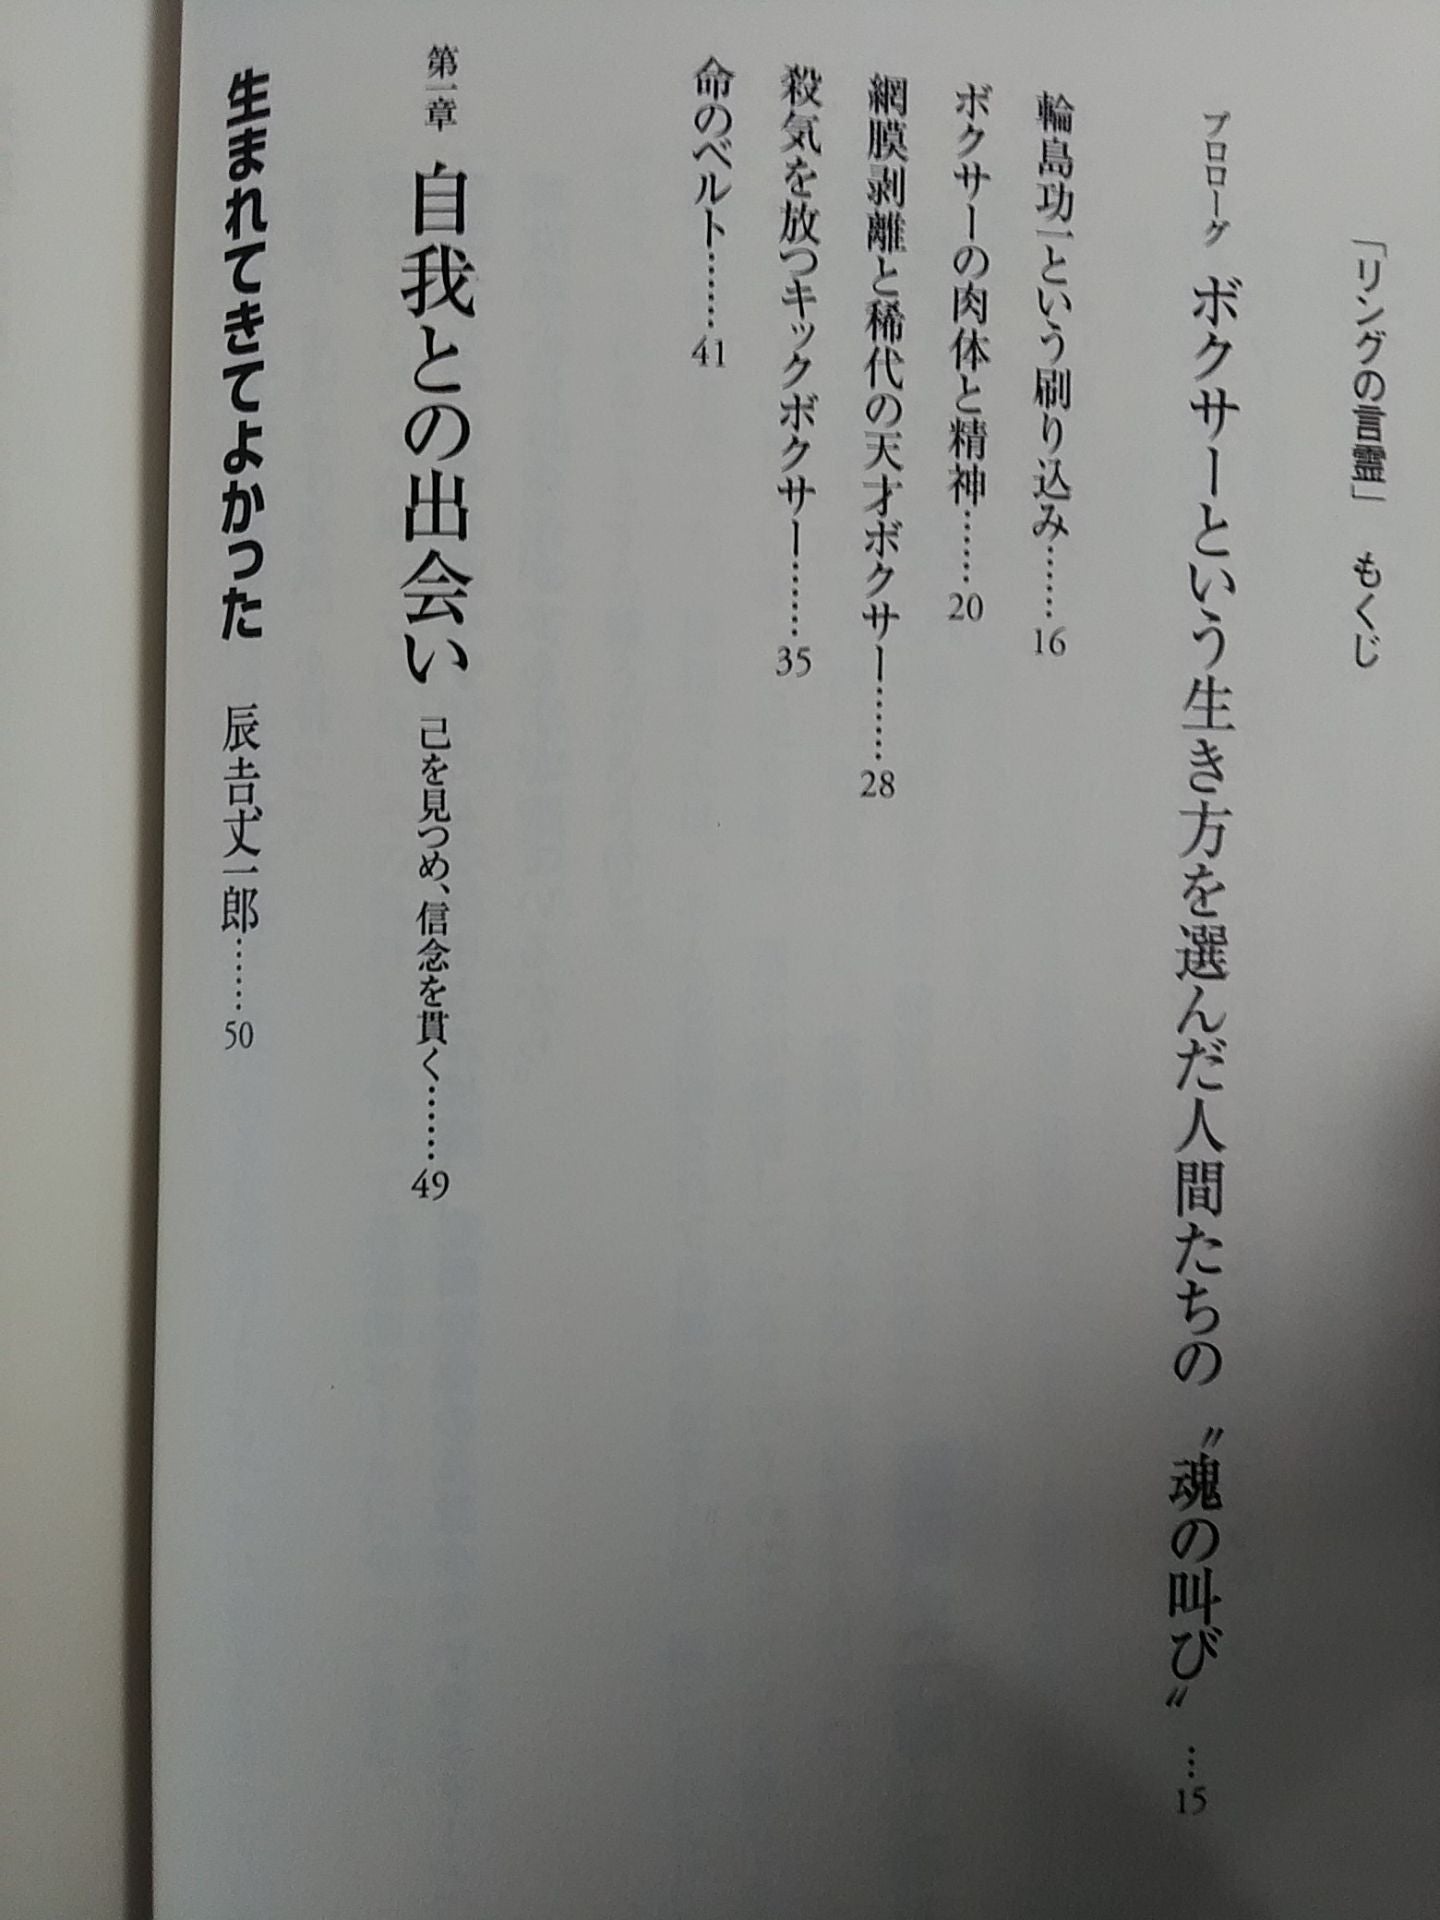 「リングの言霊」　もくじ
プロローグ　ボクサーという生き方を選んだ人間たちの〝魂の叫び〟…15
輪島功一という刷り込み……16
ボクサーの肉体と精神……20
網膜剥離と稀代の天才ボクサー……28
殺気を放つキックボクサー……35
命のベルト……41
第一章　自我との出会い　己を見つめ、信念を貫く……49
生まれてきてよかった　辰𠮷丈一郎……50